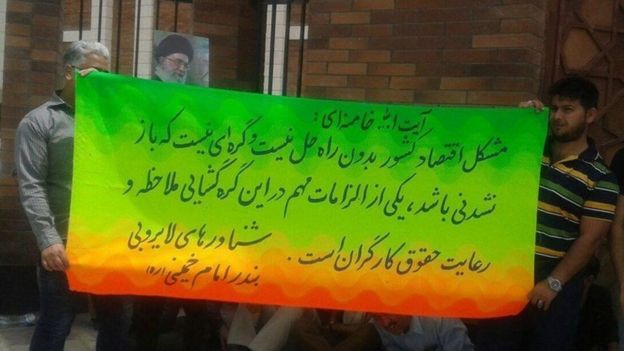 آیت الله خامنه‌ای :
مشکل اقتصاد کشور بدون راه حل نیست و گره ای نیست که باز
نشدنی باشد ، یکی از الزامات مهم در این گره گشایی ملاحظه و
رعایت حقوق کارگران است .
شناورهای لایروبی
بندر امام خمینی (ره)